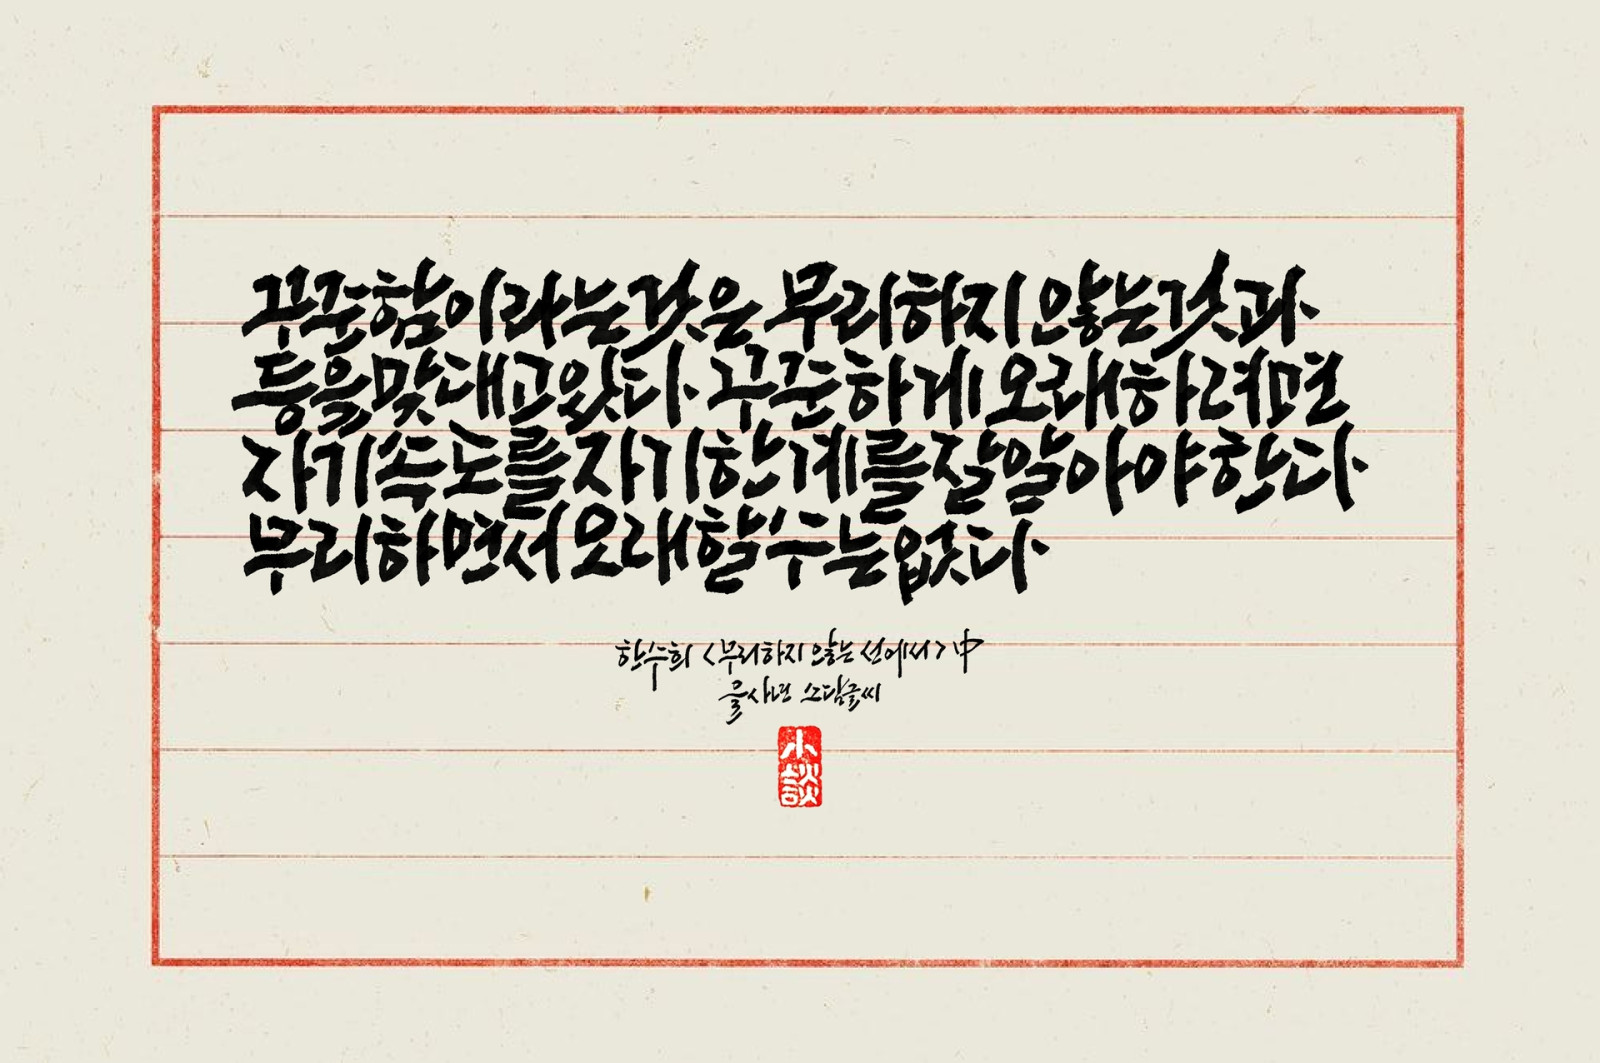 꾸준함이라는것은 무리하지 않는것과
등을맞대고있다. 꾸준하게 오래하려면
자기속도를 자기한계를 잘알아야 한다.
무리하면서 오래할 수는 없다.
한수희 <무리하지 않는 선에서> 中
을사년 소담글씨
小談